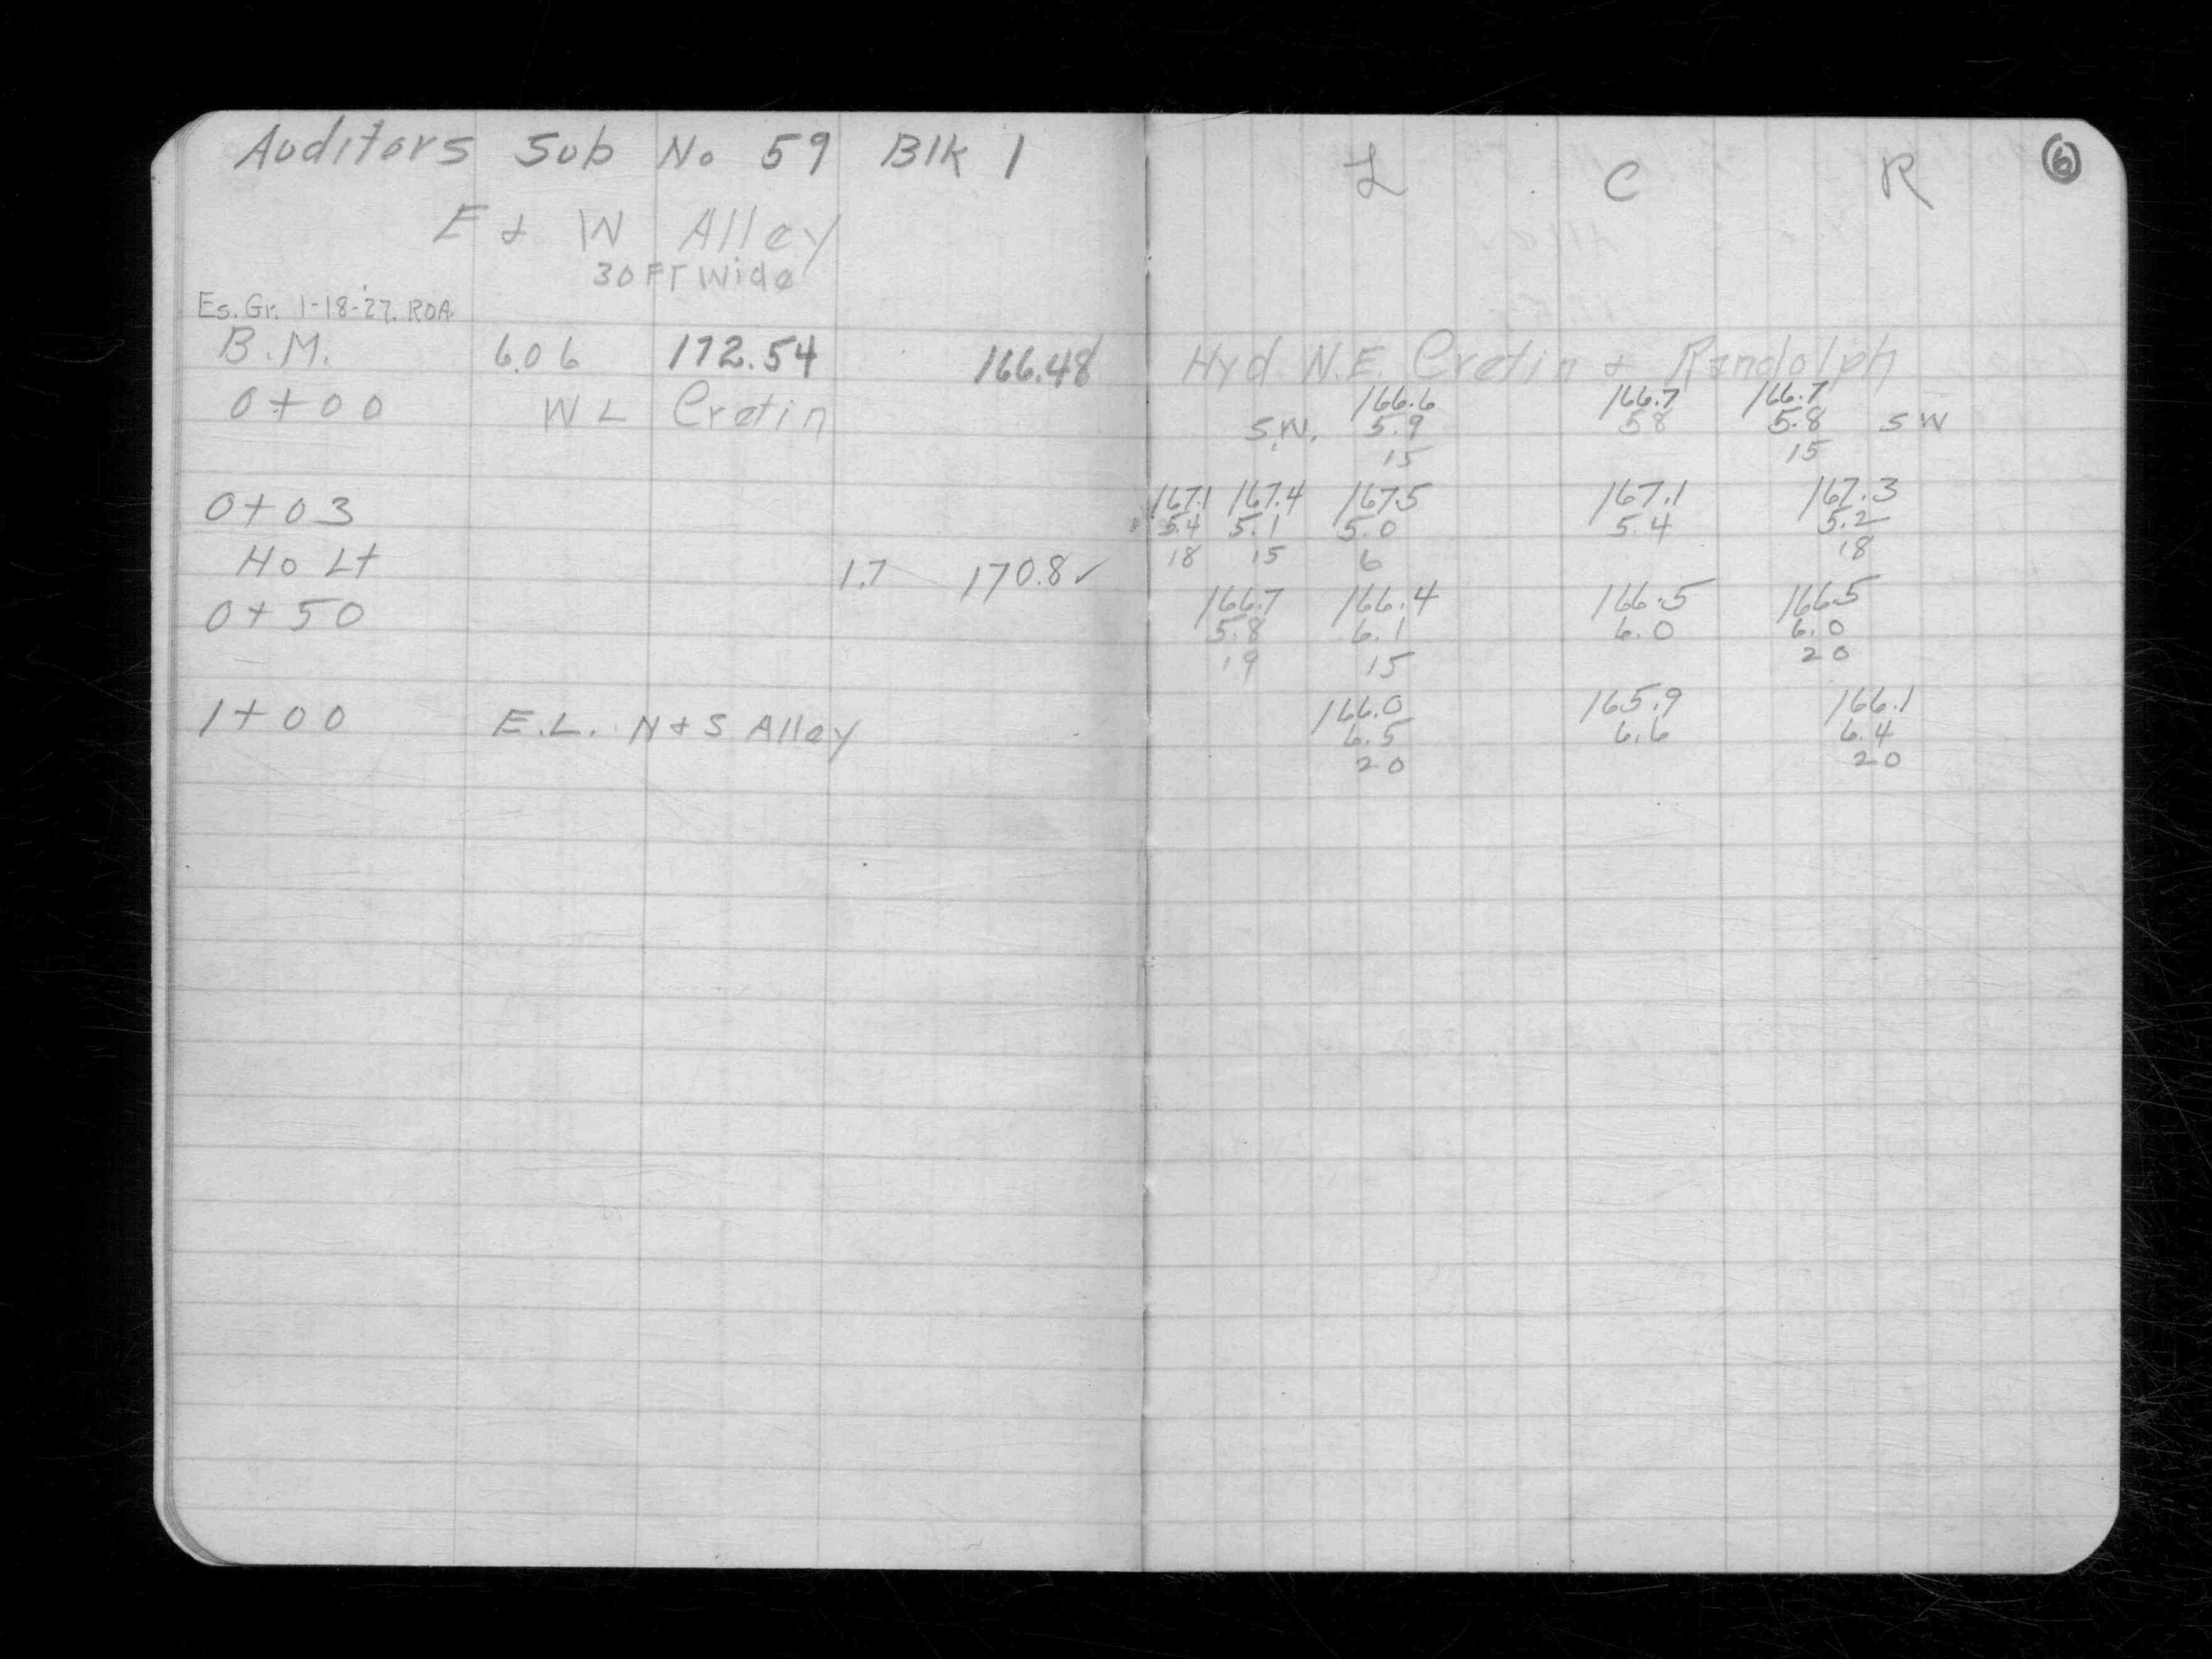 Auditors Sub No 59 Blk 1
E & W Alley
30 FT Wide
Es. Gr. 1-18-'27. ROA.
B.M. 6.06 172.54 166.48
0+00 W L Cretin
0+03
Ho Lt 1.7 170.8 ✓
0+50
1+00 E.L. N & S Alley
L C R 6
Hyd. N.E. Cretin & Randolph
166.6 166.7 166.7
S.W. 5.9 5.8 5.8 S W
15 15
167.1 167.4 167.5 167.1 167.3
5.4 5.1 5.0 5.4 5.2
18 15 6 18
166.7 166.4 166.5 166.5
5.8 6.1 6.0 6.0
19 15 20
166.0 165.9 166.1
6.5 6.6 6.4
20 20